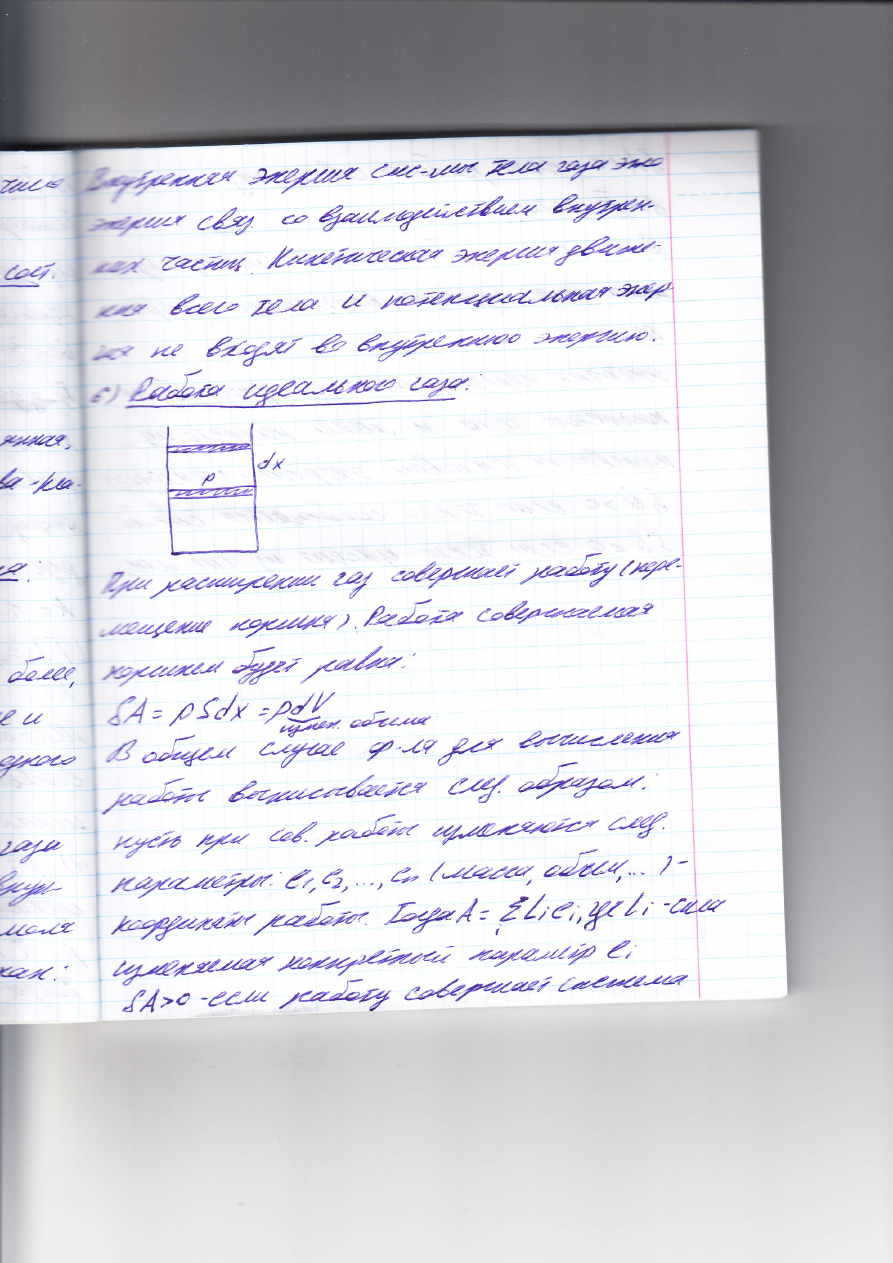 Внутренняя энергия сис-мы тела газа это
энергия связ. со взаимодействием внутрен-
них частиц. Кинетическая энергия движе-
ния всего тела и потенциальная энер-
гия не входят во внутреннюю энергию.
6) Работа идеального газа:
dx
p
При расширении газ совершает работу (пере-
мещение поршня). Работа совершаемая
поршнем будет равна:
δA = pSdx = pdV
измен. объема
В общем случае ф-ла для вычисления
работы выписывается след. образом:
пусть при сов. работы изменяются след.
параметры: l₁, l₂, ..., lₙ (масса, объем, ...) -
координаты работы. Тогда A = Σ Lᵢ lᵢ, где Lᵢ - сила
изменяемая конкретный параметр lᵢ
δA>0 - если работу совершает система
число
сост.
янная,
ва -кла-
на:
более,
е и
дкого
газа
внут-
моля
как: